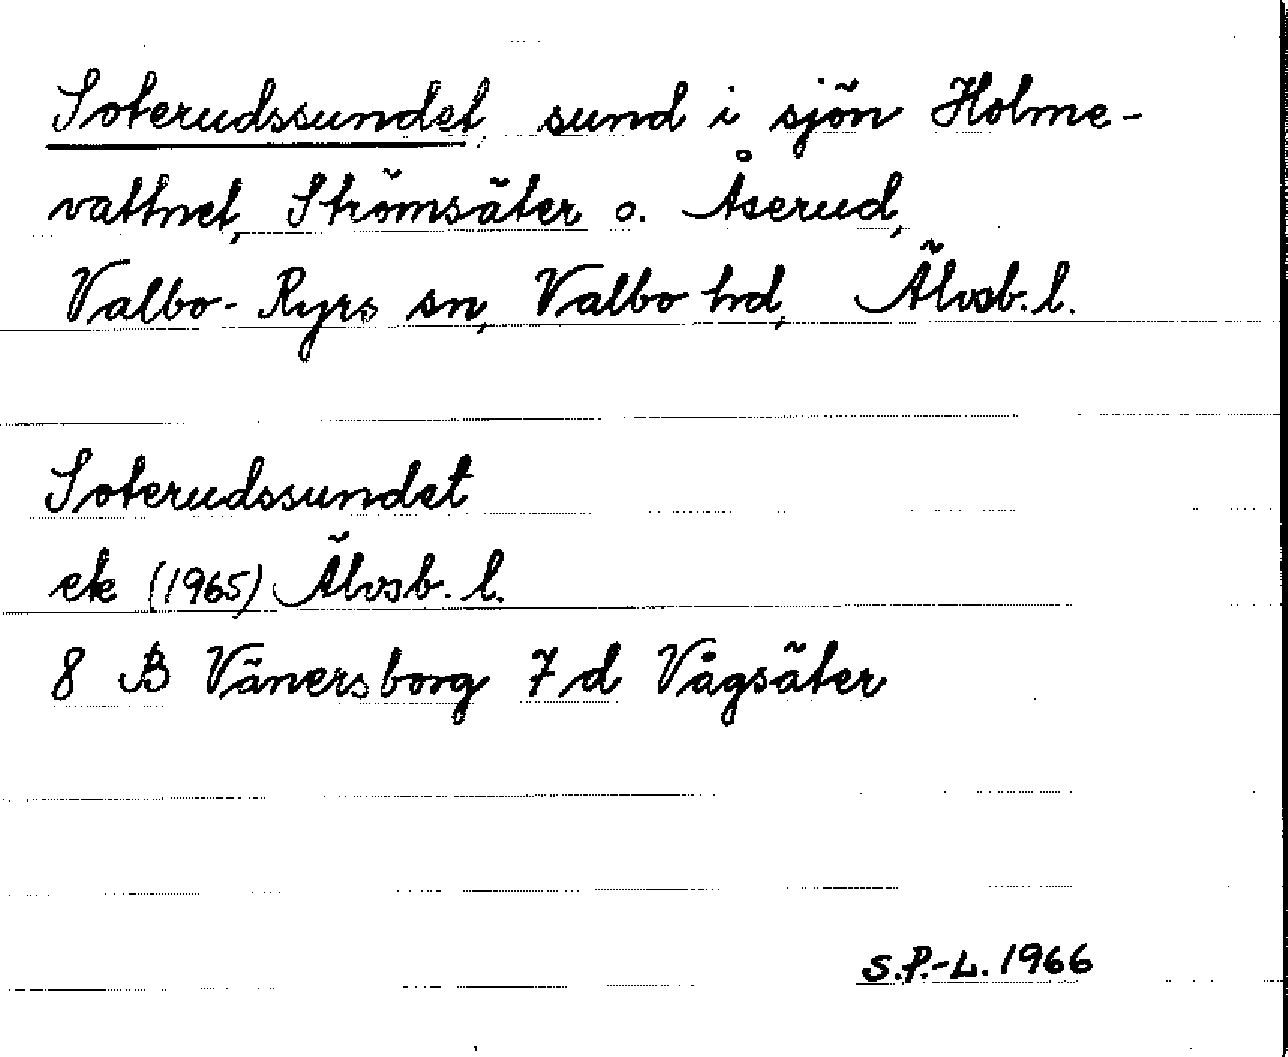 Soterudssundet, sund i sjön Holme-
vattnet, Strömsäter o. Åserud,
Valbo-Ryrs sn, Valbo hd, Älvsb. l.
Soterudssundet
ek (1965) Älvsb. l.
8 B Vänersborg 7 d Vågsäter
S.P.-L. 1966